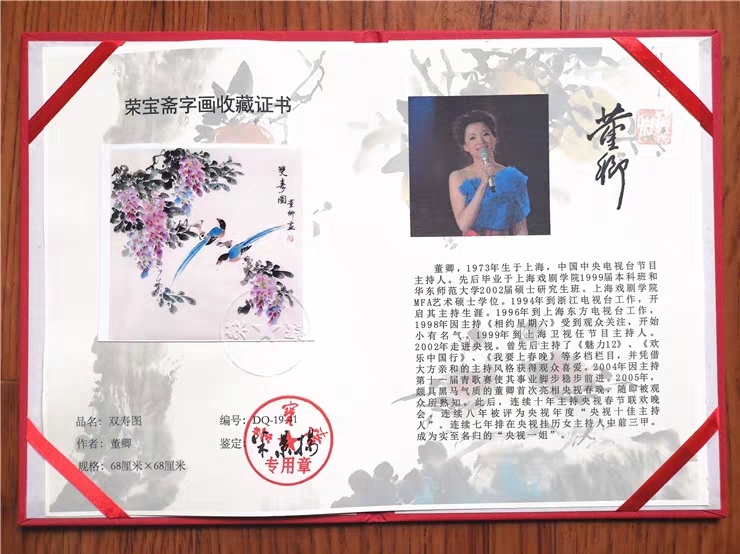 荣宝斋字画收藏证书
雙壽圖
董卿画
品名：双寿图
作者：董卿
规格：68厘米×68厘米
编号：DQ-19-41
鉴定：
专用章
董卿
董卿，1973年生于上海，中国中央电视台节目
主持人。先后毕业于上海戏剧学院1999届本科班和
华东师范大学2002届硕士研究生班。上海戏剧学院
MFA艺术硕士学位。1994年到浙江电视台工作，开
启其主持生涯。1996年到上海东方电视台工作，
1998年因主持《相约星期六》受到观众关注，开始
小有名气。1999年到上海卫视任节目主持人。
2002年走进央视。曾先后主持了《魅力12》、《欢
乐中国行》、《我要上春晚》等多档栏目，并凭借
大方亲和的主持风格获得观众喜爱。2004年因主持
第十一届青歌赛使其事业脚步稳步前进。2005年，
颇具黑马气质的董卿首次亮相央视春晚，随即被观
众所熟知。此后，连续十年主持央视春节联欢晚
会。连续八年被评为央视年度“央视十佳主持
人”。连续七年排在央视挂历女主持人中前三甲。
成为实至名归的“央视一姐”。